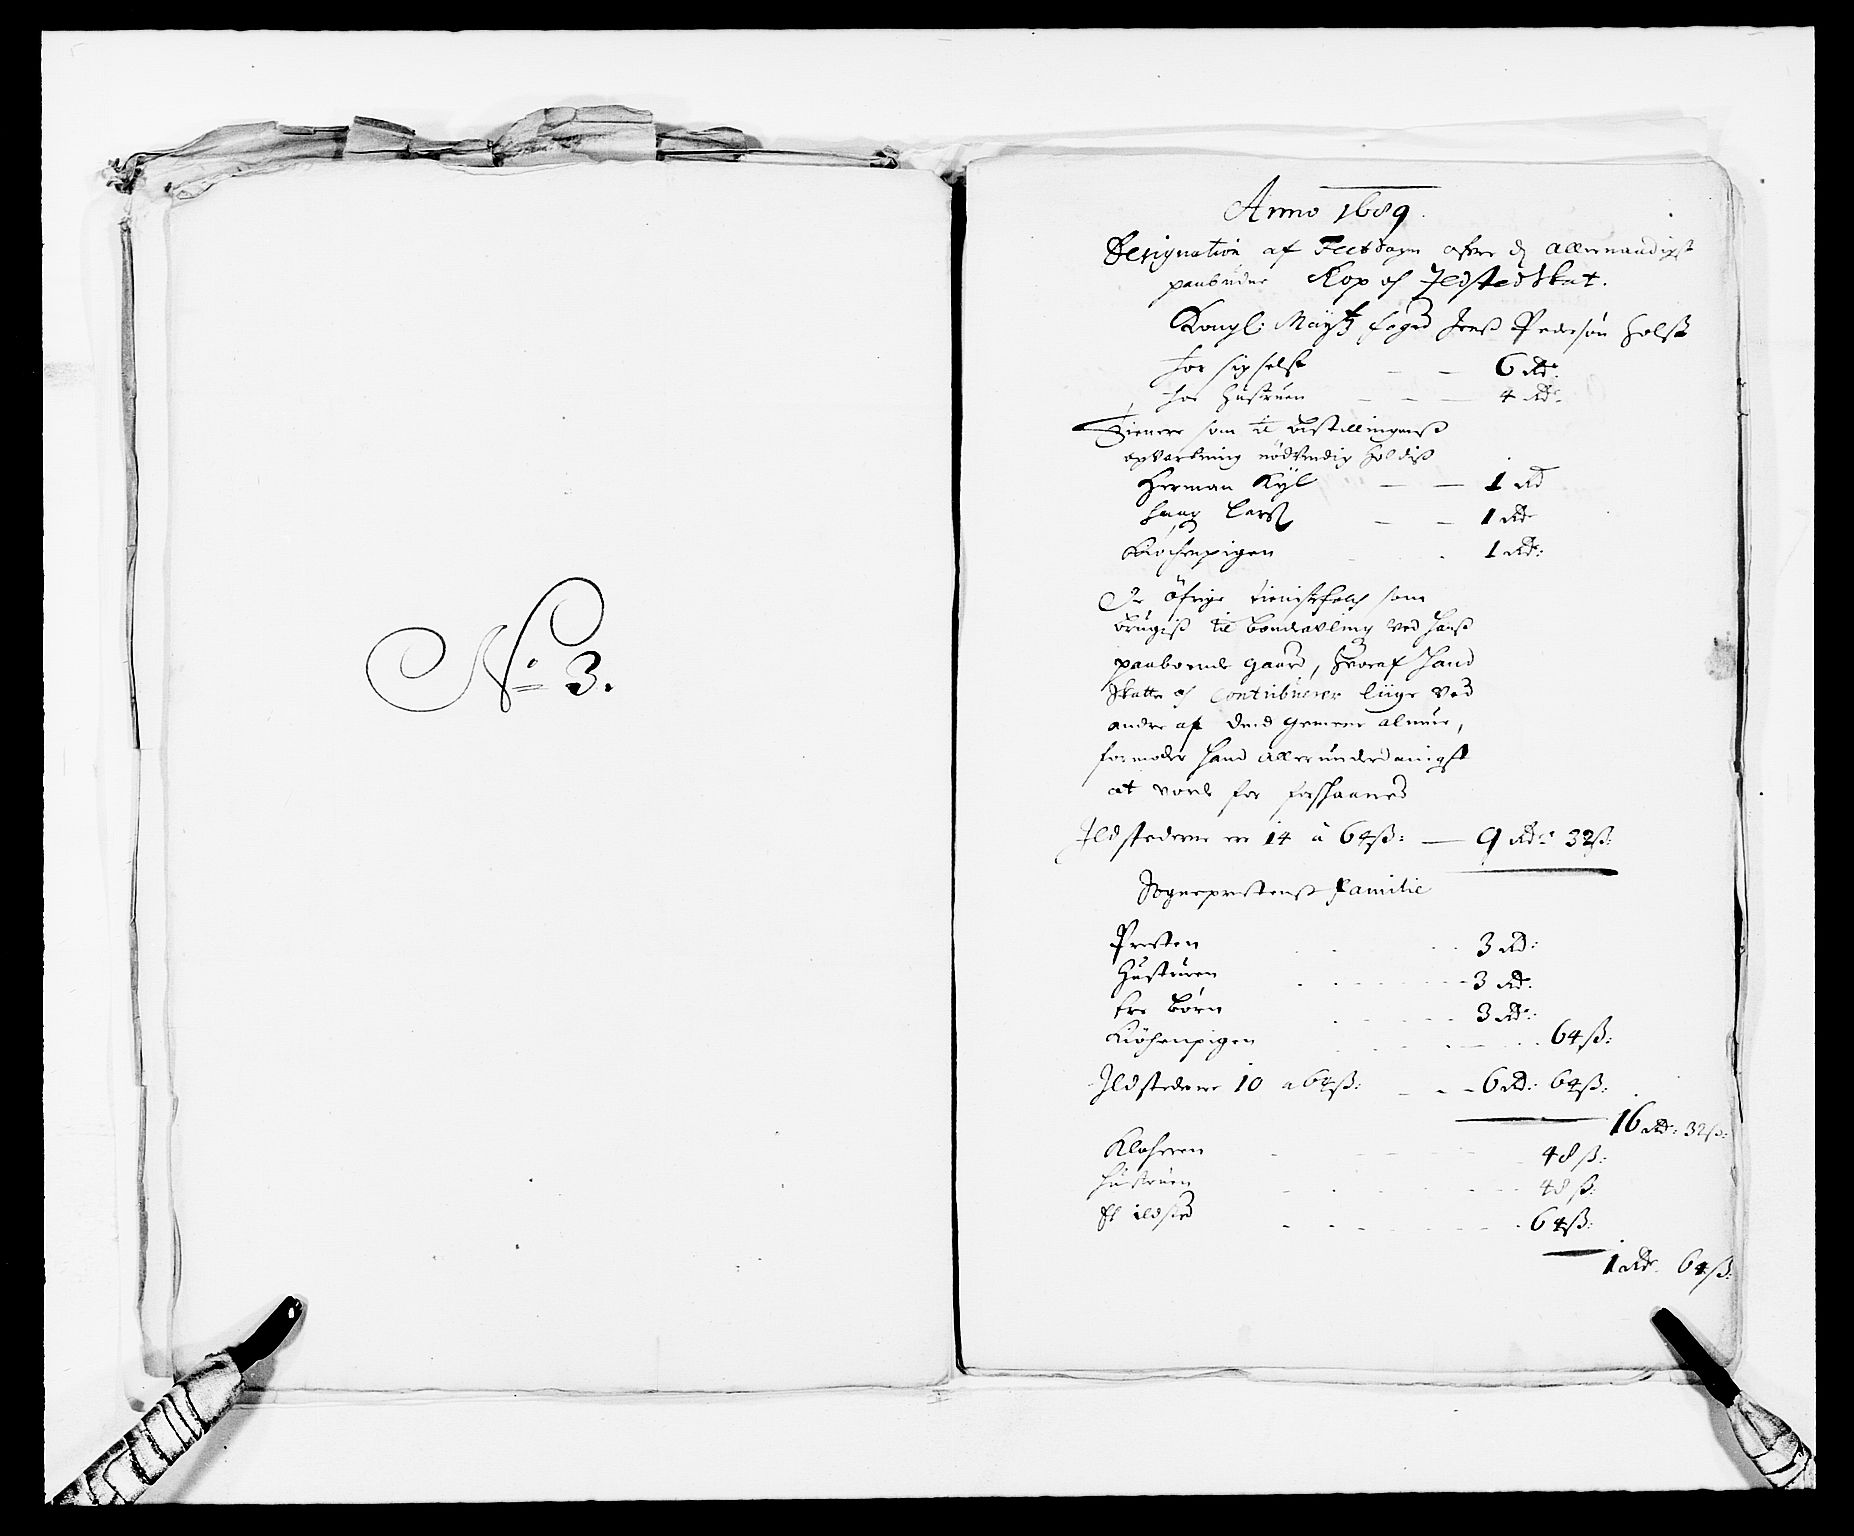 No 3.
Anno 1689.
Designation af Feetsogn efter d allernaadigst
paabudne Kop og Ildsted Skat.
Kongl: Maÿts foged Jens Pedersøn Holst
for sig self — — 6 Rdr.
for Hustruen — — — 4 Rdr.
Tienere som til bestillingens
opvartning nødvendig holdis
Herman Kÿl — — 1 Rd
Lars — — 1 Rdr
Kochepigen 1 Rdr:
De öfrige tienistefolch som
brugis til bondeavling ved hans
paaboende gaard, hvoraf hand
Skatter og Contribuerer liige ved
andre af dend gemene almue,
formoder hand allerunderdanigst
at vorde for forskaaned
Ildstederne er 14 a 64 ß: — 9 Rdr 32 ß:
Sogneprestens familie
Presten 3 Rd:
Hustruen 3 Rd:
tre børn 3 Rdr:
Kiøchenpigen 64 ß:
Ildstederne 10 a 64 ß: — 6 Rd: 64 ß:
16 Rdr: 32 ß:
Klocheren 48 ß:
Hustruen 48 ß:
Et ildsted 64 ß:
1 Rdr. 64 ß: